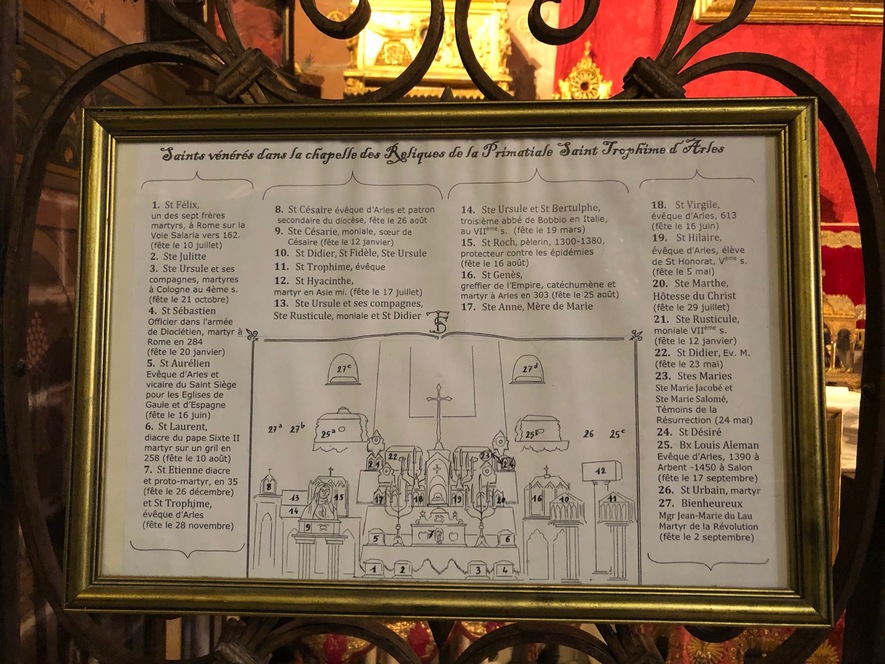 Saints vénérés dans la chapelle des Reliques de la Primatiale Saint Trophime d'Arles
1. St Félix,
un des sept frères
martyrs, à Rome sur la
Voie Salaria vers 162.
(fête le 10 juillet)
2. Ste Julitte
3. Ste Ursule et ses
compagnes, martyres
à Cologne au 4ème s.
(fête le 21 octobre)
4. St Sébastien
Officier dans l'armée
de Dioclétien, martyr à
Rome en 284
(fête le 20 janvier)
5. St Aurélien
Evêque d'Arles et
vicaire du Saint Siège
pour les Eglises de
Gaule et d'Espagne
(fête le 16 juin)
6. St Laurent,
diacre du pape Sixte II
martyr sur un gril en
258 (fête le 10 août)
7. St Etienne diacre
et proto-martyr, en 35
(fête le 26 décembre)
et St Trophime,
évêque d'Arles
(fête le 28 novembre)
8. St Césaire évêque d'Arles et patron
secondaire du diocèse, fête le 26 août
9. Ste Césarie, moniale, sœur de
Césaire (fête le 12 janvier)
10. St Didier, St Fidèle, Ste Ursule
11. St Trophime, évêque
12. St Hyacinthe,
martyr en Asie mi. (fête le 17 juillet)
13. Ste Ursule et ses compagnes,
Ste Rusticule, moniale et St Didier
14. Ste Ursule et St Bertulphe,
troisième abbé de Bobbio en Italie,
au VIIème s. (fête le 19 mars)
15. St Roch, pèlerin, 1300-1380,
protecteur contre les épidémies
(fête le 16 août)
16. St Genès,
greffier de l'Empire, catéchumène et
martyr à Arles en 303 (fête le 25 août)
17. Ste Anne, Mère de Marie
18. St Virgile,
évêque d'Arles, 613
(fête le 16 juin)
19. St Hilaire,
évêque d'Arles, élève
de St Honorat, Vème s.
(fête le 5 mai)
20. Ste Marthe,
Hôtesse du Christ
(fête le 29 juillet)
21. Ste Rusticule,
moniale VIIème s.
(fête le 12 janvier)
22. St Didier, Ev. M.
(fête le 23 mai)
23. Stes Maries
Ste Marie Jacobé et
Ste Marie Salomé,
Témoins de la
Résurrection (24 mai)
24. St Désiré
25. Bx Louis Aleman
Evêque d'Arles, 1390 à
Arbent -1450 à Salon
(fête le 17 septembre)
26. St Urbain, martyr
27. Bienheureux
Mgr Jean-Marie du Lau
Martyr de la Révolution
(fête le 2 septembre)
27c 27d
27a 27b 25a 25b 26 25c
22 23
21 24 12
8 13 15 17 18 19 20 16 10 11
14
9 7
5 6
1 2 3 4